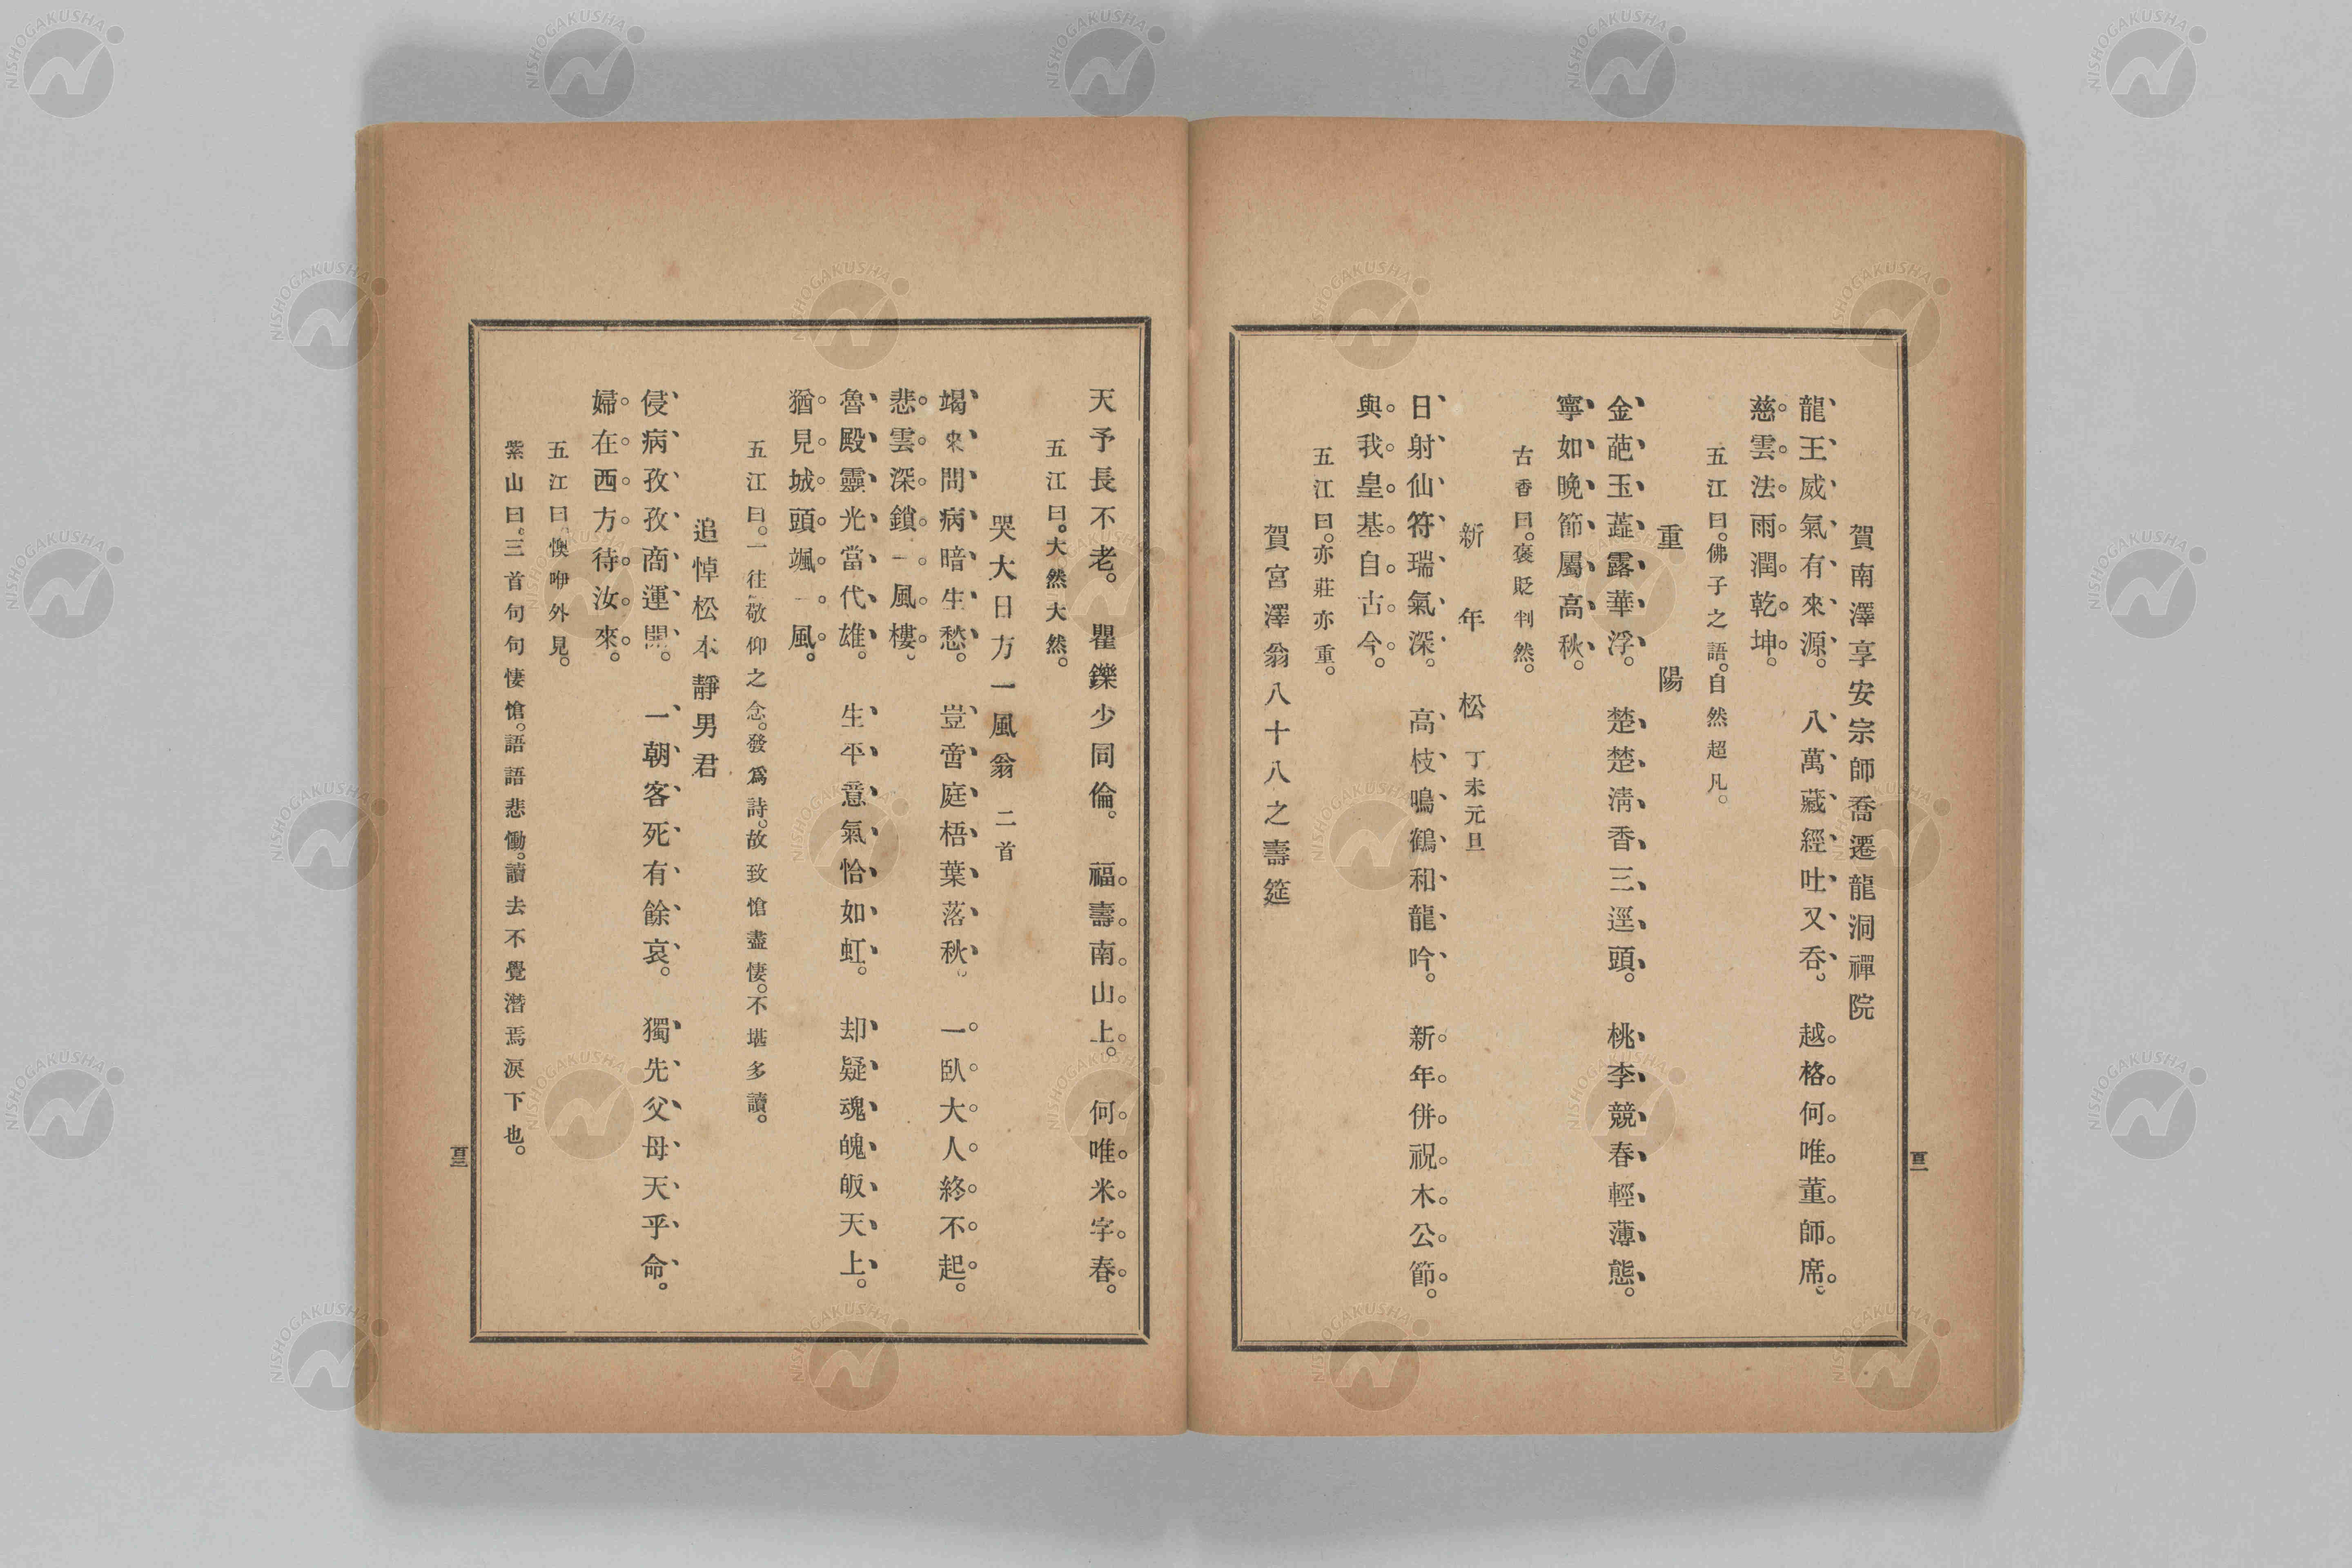 賀南澤享安宗師喬遷龍洞禪院
龍王威氣有來源。八萬藏經吐又呑。越格何唯董師席。
慈雲法雨潤乾坤。
五江曰。佛子之語。自然超凡。
重陽
金葩玉蘂露華浮。楚楚淸香三逕頭。桃李競春輕薄態。
寧如晩節屬高秋。
古香曰。褒貶判然。
新年松 丁未元旦
日射仙符瑞氣深。高枝鳴鶴和龍吟。新年併祝木公節。
與我皇基自古今。
五江曰。亦莊亦重。
賀宮澤翁八十八之壽筵
百二
天予長不老。瞿鑠少同倫。福壽南山上。何唯米字春。
五江曰。大然大然。
哭大日方一風翁 二首
朅來問病暗生愁。豈啻庭梧葉落秋。一臥大人終不起。
悲雲深鎖一風樓。
魯殿靈光當代雄。生平意氣恰如虹。却疑魂魄皈天上。
猶見城頭颯一風。
五江曰。一往敬仰之念。發爲詩。故致愴盡悽。不堪多讀。
追悼松本靜男君
侵病孜孜商運開。一朝客死有餘哀。獨先父母天乎命。
婦在西方待汝來。
五江曰。懊咿外見。
紫山曰。三首句句悽愴。語語悲慟。讀去不覺潛焉涙下也。
百三
NISHOGAKUSHA